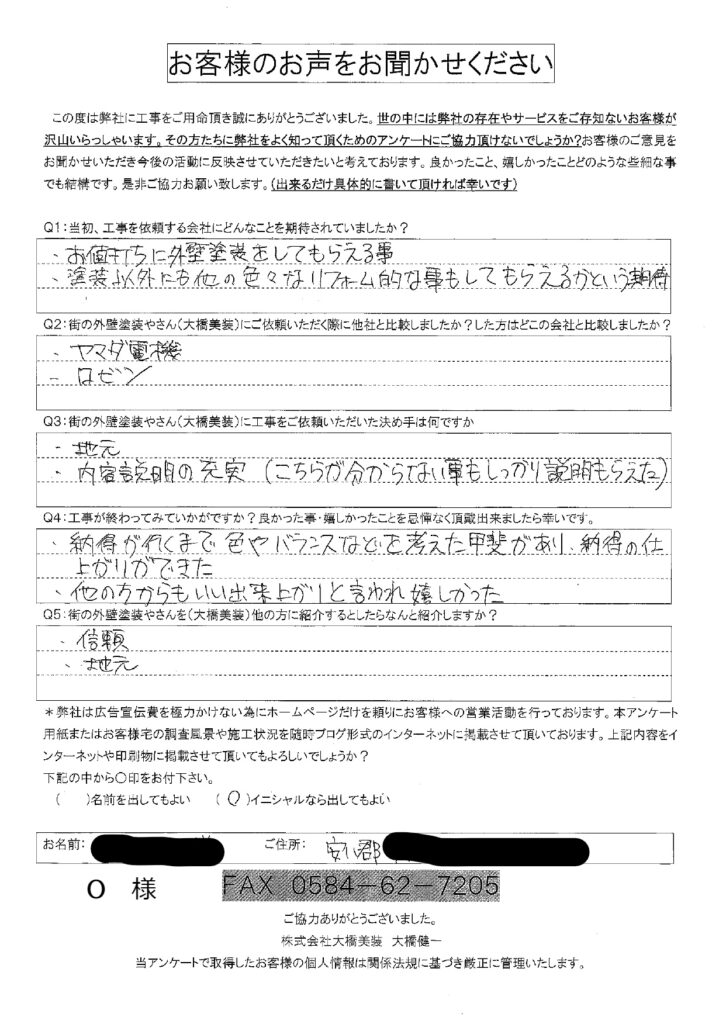 お客様のお声をお聞かせください
この度は弊社に工事をご用命頂き誠にありがとうございました。世の中には弊社の存在やサービスをご存知ないお客様が
沢山いらっしゃいます。その方たちに弊社をよく知って頂くためのアンケートにご協力頂けないでしょうか?お客様のご意見を
お聞かせいただき今後の活動に反映させていただきたいと考えております。良かったこと、嬉しかったことどのような些細な事
でも結構です。是非ご協力お願い致します。(出来るだけ具体的に書いて頂ければ幸いです)
Q1:当初、工事を依頼する会社にどんなことを期待されていましたか?
・お値打ちに外壁塗装をしてもらえる事
・塗装以外にも他の色々なリフォーム的な事もしてもらえるかという期待
Q2:街の外壁塗装やさん(大橋美装)にご依頼いただく際に他社と比較しましたか?した方はどこの会社と比較しましたか?
・ヤマダ電機
- ロビン
Q3:街の外壁塗装やさん(大橋美装)に工事をご依頼いただいた決め手は何ですか
・地元
・内容説明の充実(こちらが分からない事もしっかり説明もらえた)
Q4:工事が終わってみていかがですか?良かった事・嬉しかったことを忌憚なく頂戴出来ましたら幸いです。
・納得が行くまで色やバランスなどを考えた甲斐があり、納得の仕
上がりができた
・他の方からもいい出来上がりと言われ嬉しかった
Q5:街の外壁塗装やさんを(大橋美装)他の方に紹介するとしたらなんと紹介しますか?
・信頼
・地元
*弊社は広告宣伝費を極力かけない為にホームページだけを頼りにお客様への営業活動を行っております。本アンケート
用紙またはお客様宅の調査風景や施工状況を随時ブログ形式のインターネットに掲載させて頂いております。上記内容をイ
ンターネットや印刷物に掲載させて頂いてもよろしいでしょうか?
下記の中から〇印をお付下さい。
( )名前を出してもよい (〇)イニシャルなら出してもよい
お名前: ご住所: 安八郡
O 様 FAX 0584-62-7205
ご協力ありがとうございました。
株式会社大橋美装 大橋健一
当アンケートで取得したお客様の個人情報は関係法規に基づき厳正に管理いたします。